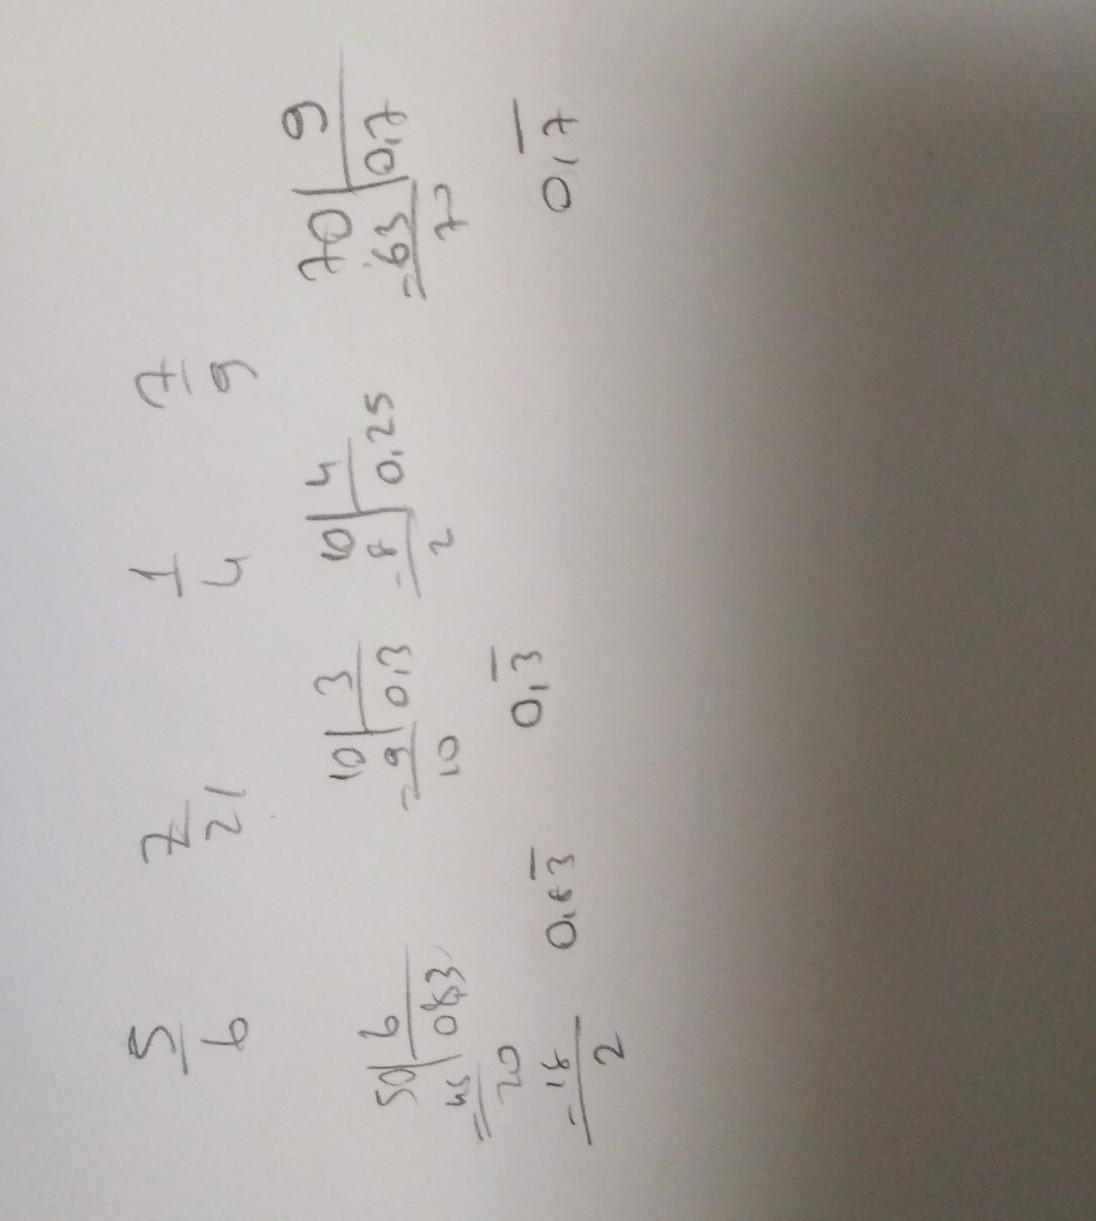 5/6 7/21 1/4 7/9
50 | 6
-48 | 0,83
20
-18
2
0,8̅3̅
10 | 3
-9 | 0,3
10
0,3̅
10 | 4
-8 | 0,25
2
70 | 9
-63 | 0,7
70
0,7̅